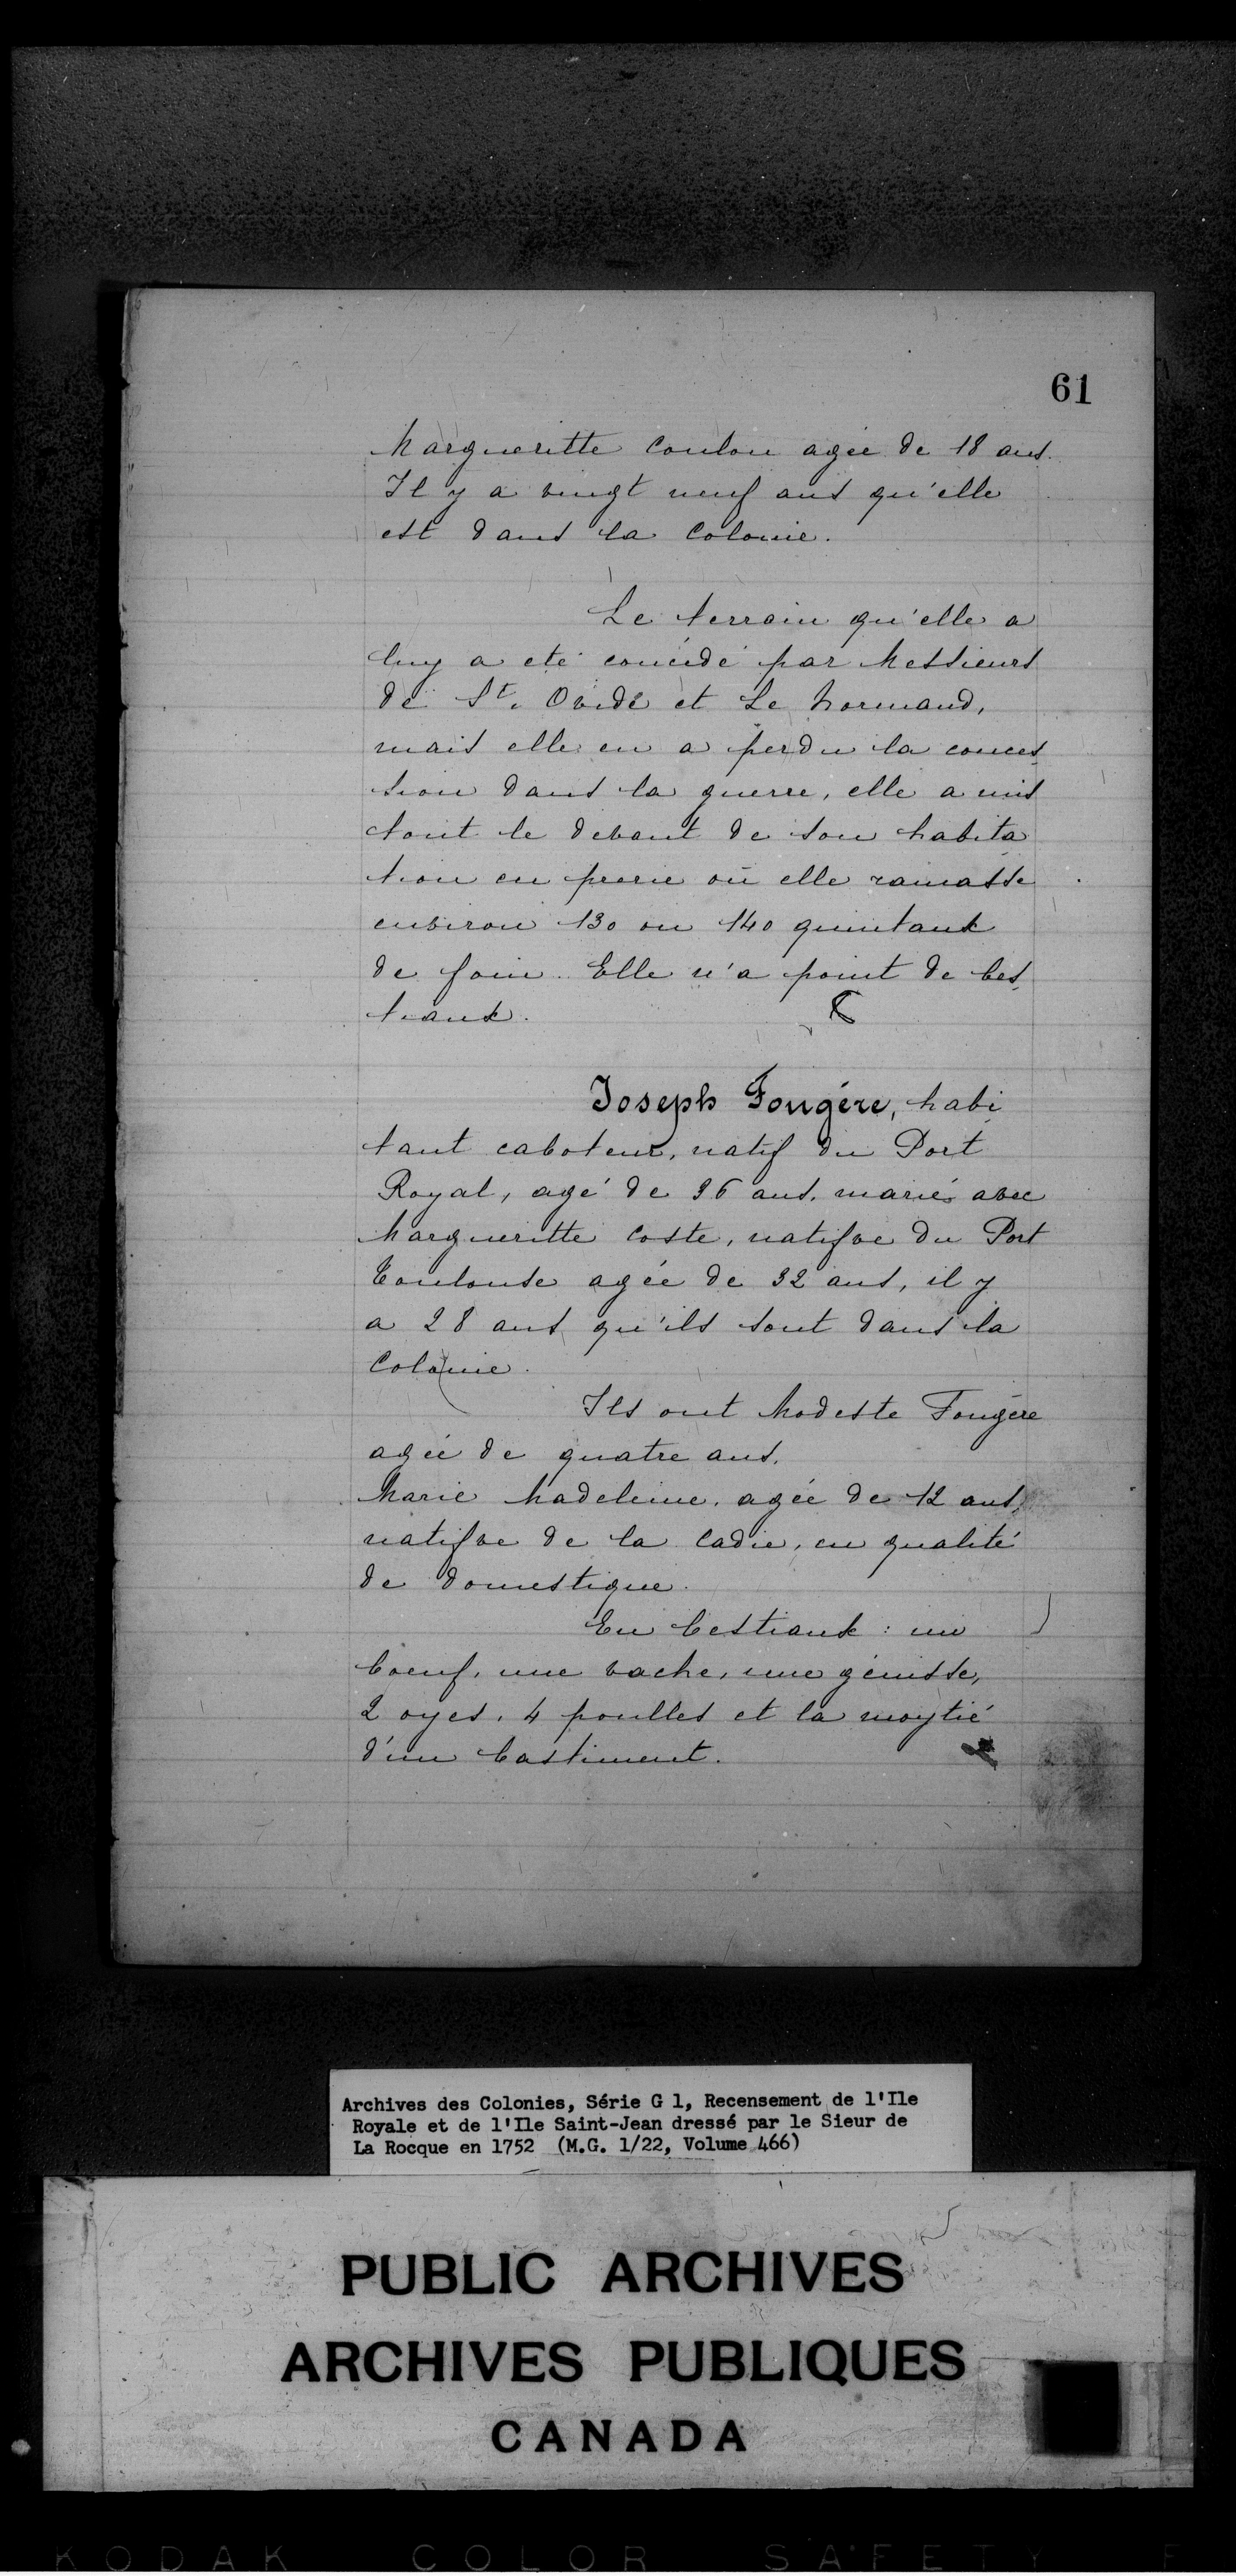 61
Margueritte Coulon agée de 18 ans.
Il y a vingt neuf ans qu'elle
est dans la Colonie.
Le terrain qu'elle a
luy a eté concédé par Messieurs
de St. Ovide et Le Normand,
mais elle en a perdu la conces
sion dans la guerre, elle a mis
tout le devant de son habita
tion en prerie où elle ramasse
environ 130 ou 140 quintaux
de foin. Elle n'a point de bes
tiaux.
Joseph Fougére, habi
tant caboteur, natif du Port
Royal, agé de 36 ans, marié avec
Margueritte Coste, natifve du Port
Toulouse agée de 32 ans, il y
a 28 ans qu'ils sont dans la
Colonie.
Ils ont Modeste Fougére
agée de quatre ans.
Marie Madeleine, agée de 12 ans,
natifve de la Cadie, en qualité
de domestique.
En bestiaux : un
boeuf, une vache, une génisse,
2 oyes, 4 poulles et la moytié
d'un bastiment.
Archives des Colonies, Série G 1, Recensement de l'Ile
Royale et de l'Ile Saint-Jean dressé par le Sieur de
La Rocque en 1752 (M.G. 1/22, Volume 466)
PUBLIC ARCHIVES
ARCHIVES PUBLIQUES
CANADA
KODAK COLOR SAFETY F